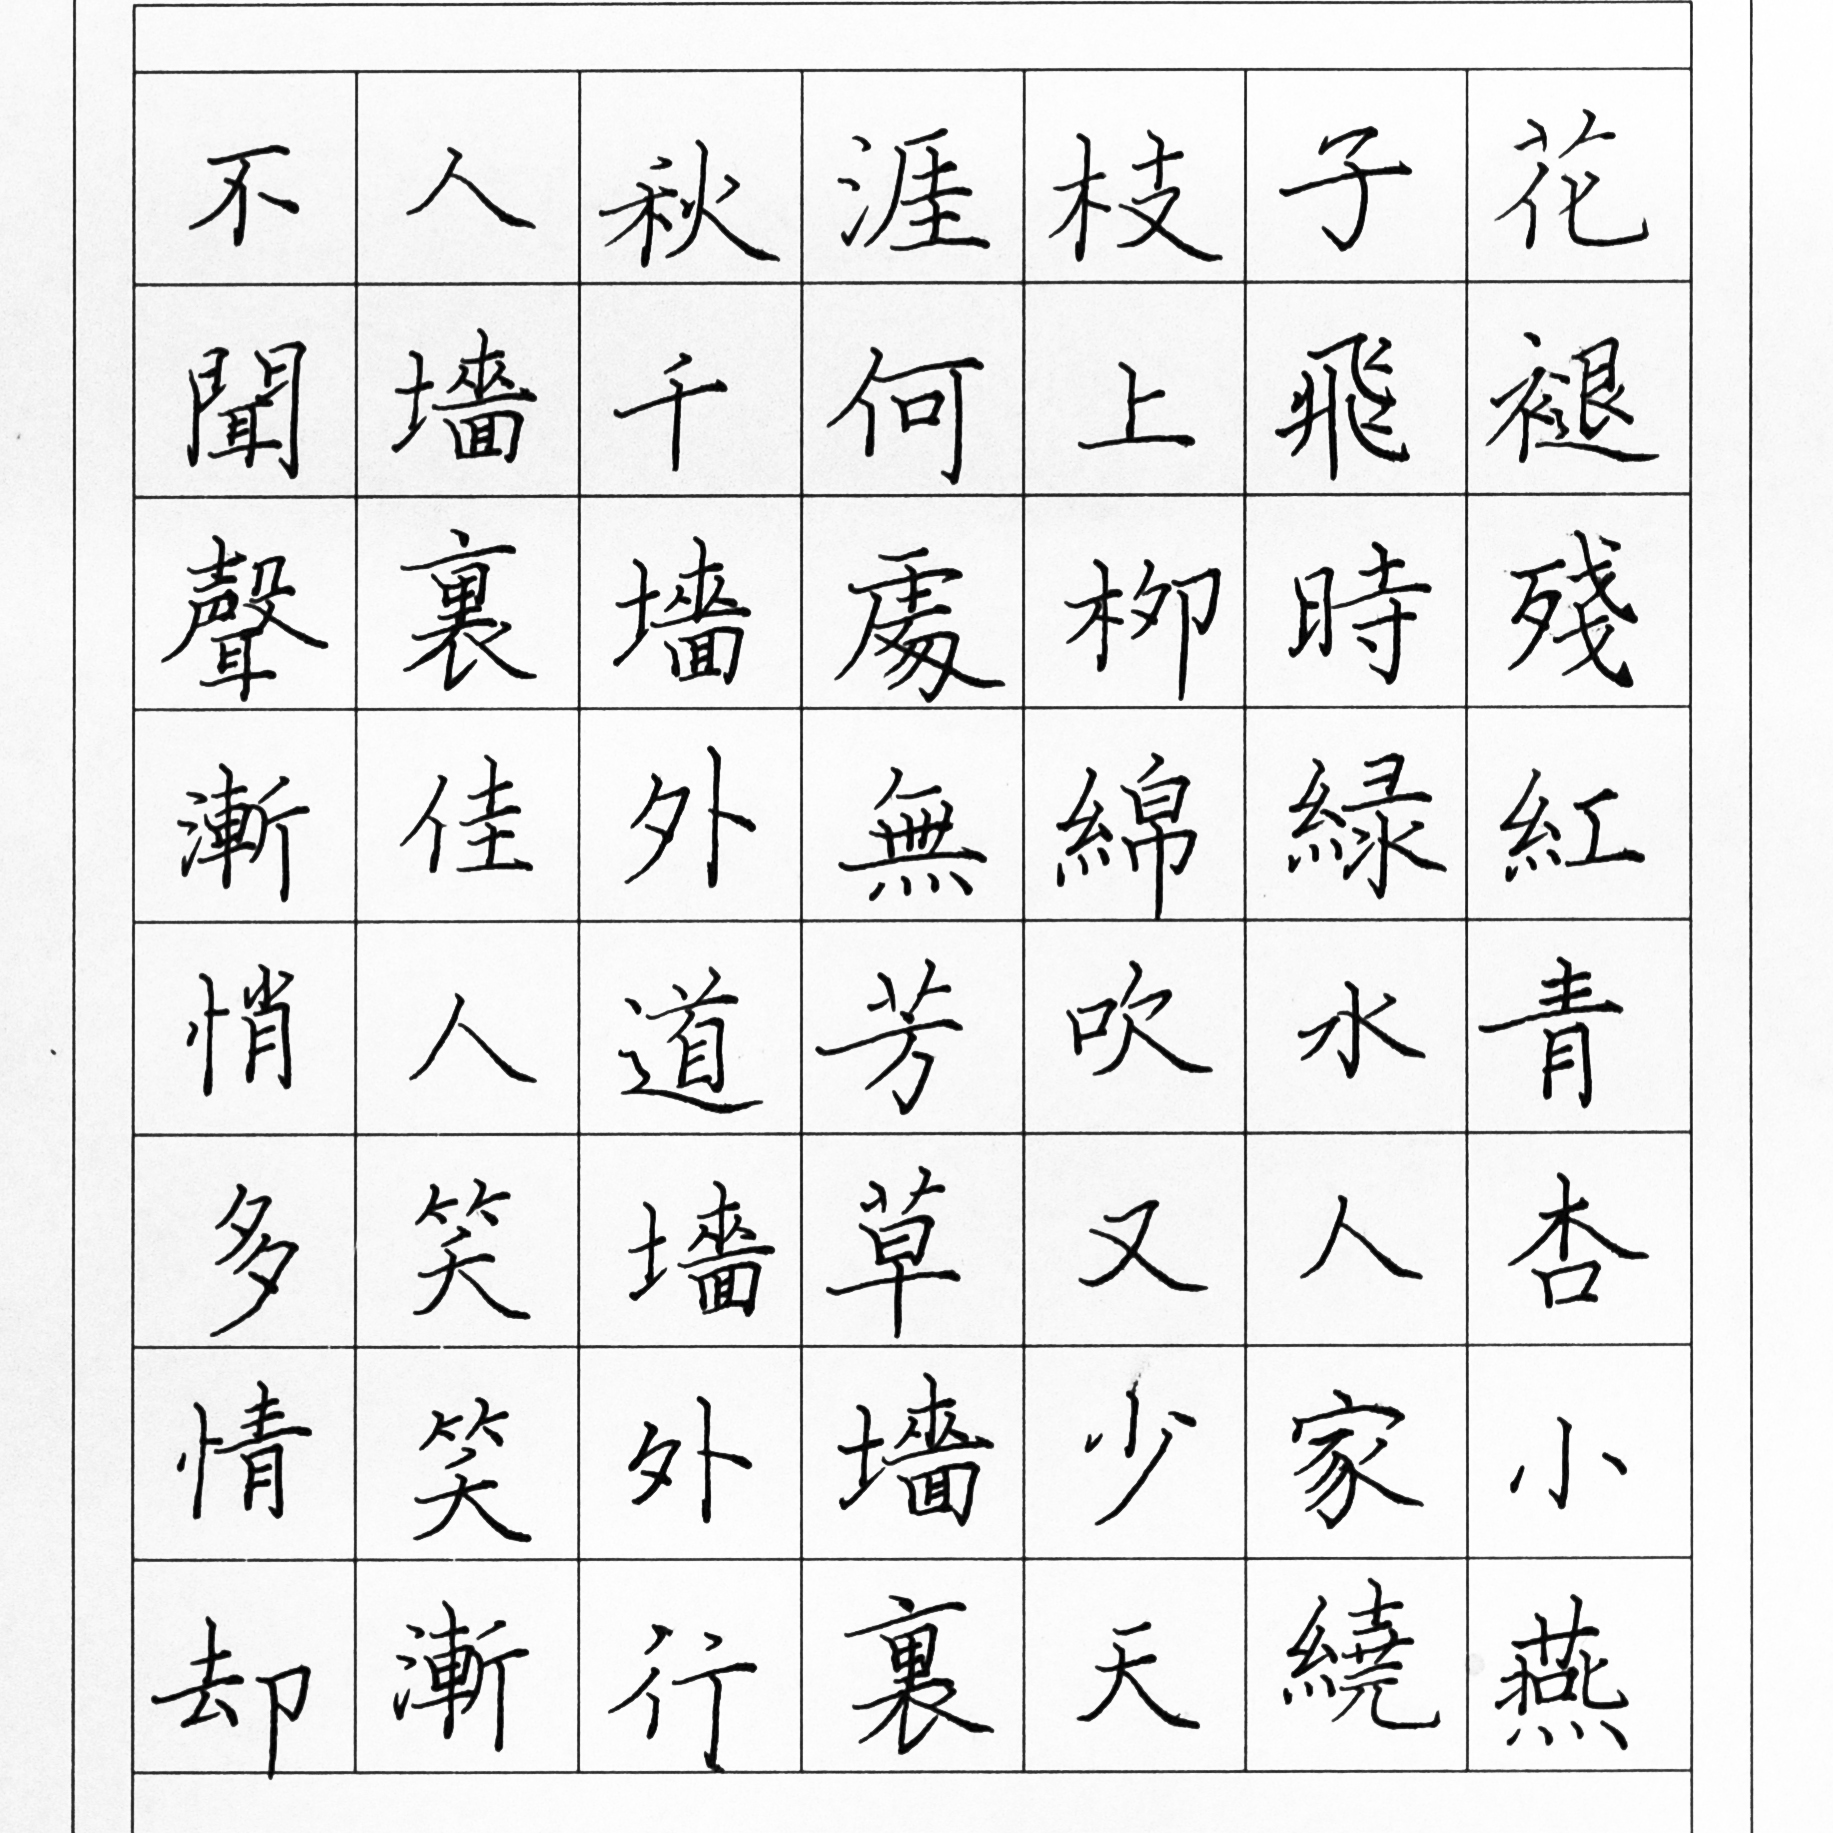 花褪殘紅青杏小燕
子飛時緑水人家繞
枝上柳綿吹又少天
涯何處無芳草墻裏
秋千墻外道墻外行
人墻裏佳人笑笑漸
不聞聲漸悄多情却